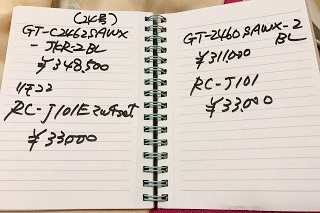 (24号)
GT-C2462SAWX
-JKR-2BL
¥348,500
リモコン
RC-J101E 2w/set
¥33000
GT-2460SAWX-2
BL
¥311000
RC-J101
¥33,000